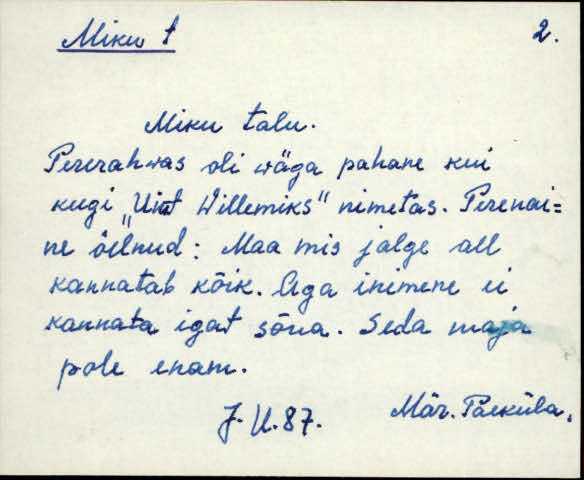 Miku t
2.
Miku talu.
Pererahwas oli wäga pahane kui
keegi "Uint Willemiks" nimetas. Perenai=
ne öelnud: Maa mis jalge all
kannatab kõik. Aga inimene ei
kannata igat sõna. Seda maja
pole enam.
J. U. 87.
Mär. Paeküla.